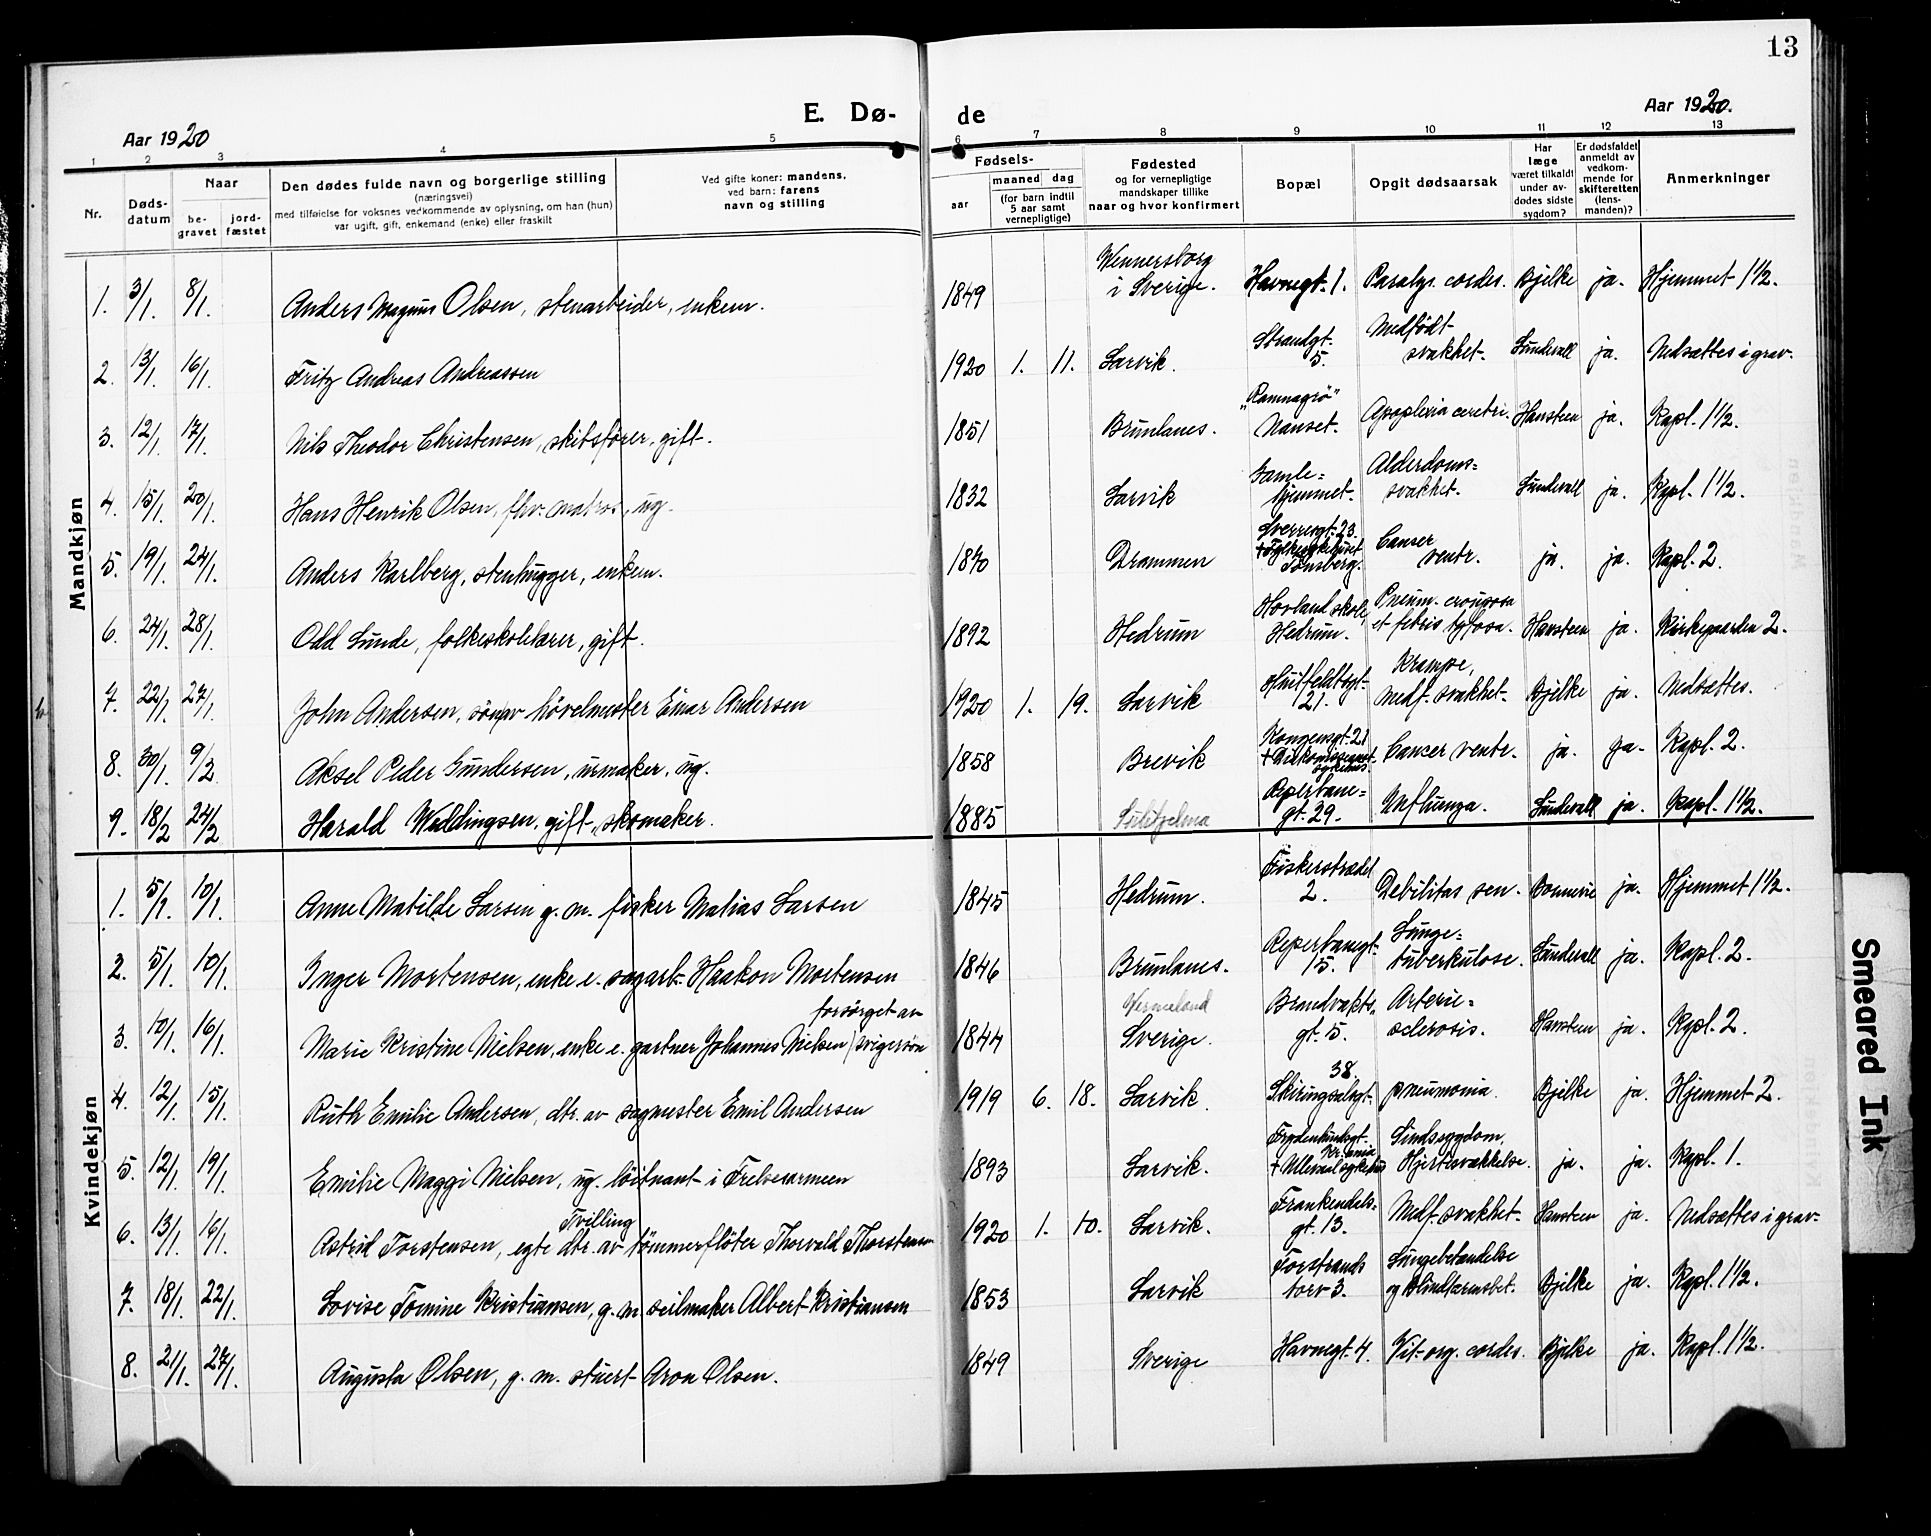 13
E. Dø- de
Aar 1920
Aar 1920.
1 2 3 4 5 6 7 8 9 10 11 12 13
Nr.
Døds-datum
Naar
be-gravet
jord-fæstet
Den dødes fulde navn og borgerlige stilling
(næringsvei)
med tilføielse for voksnes vedkommende av oplysning, om han (hun)
var ugift, gift, enkemand (enke) eller fraskilt
Ved gifte koner: mandens,
ved barn: farens
navn og stilling
Fødsels-
aar
maaned
dag
(for barn indtil
5 aar samt
vernepligtige)
Fødested
og for vernepligtige
mandskaper tillike
naar og hvor konfirmert
Bopæl
Opgit dødsaarsak
Har
læge
været tilkaldt
under av-
dødes sidste
sygdom?
Er dødsfaldet
anmeldt av
vedkom-
mende for
skifteretten
(lens-
manden)?
Anmerkninger
Mandkjøn
1. 3/1. 8/1. Anders Magnus Olsen, stenarbeider, enkem. 1849 Wennersborg i Sverige. Havnegt. 1. Paralys. cordis. Bjelke ja. Hjemmet 1 1/2.
2. 13/1. 16/1. Fritz Andreas Andreassen 1920 1. 11. Larvik. Strandgt. 5. Medfödt svakhet. Sundvall ja. Nedsættes i grav.
3. 12/1. 17/1. Nils Theodor Christensen, skibsfører, gift. 1851 Brunlanes. Nanset. Apoplexia cerebri. Hansteen ja. Kapl. 1 1/2.
4. 15/1. 20/1. Hans Henrik Olsen, fhv. matros, ug. 1832 Larvik Gamle=hjemmet. Alderdoms=svakhet. Sundvall ja. Kapl. 1 1/2.
5. 19/1. 24/1. Anders Karlberg, stenhugger, enkem. Drammen Sverresgt. 23. Tönsberg. Cancer ventr. ja. ja. Kapl. 2.
6. 24/1. 28/1. Odd Lunde, folkeskolelærer, gift. 1892 Hedrum Hovland skole, Hedrum. Pneum. crouposa et febris tyfosa. Hansteen ja. Kirkegaarden 2.
7. 22/1. 27/1. John Andersen, sön av hövelmester Einar Andersen 1920 1. 19. Larvik Huitfeldtsgt. 21. Krampe, medf. svakhet. Bjelke ja. Nedsættes.
8. 30/1. 9/2. Aksel Peder Gundersen, urmaker, ug. 1858 Brevik Kongensgt. 21 Cancer ventr. ja. ja. Kapl. 2.
9. 18/2 24/2 Harald Weddingsen, gift, skomaker. 1885 Sulitjelma Reperbane=gt. 29. Influenza. Sundvall ja. Kapl. 1 1/2.
Kvindekjøn
1. 5/1. 10/1. Anne Matilde Larsen g. m. fisker Matias Larsen 1845 Hedrum. Fiskerstrædet 2. Debilitas sen. Bonnevie ja. Hjemmet 1 1/2.
2. 5/1. 10/1. Inger Mortensen, enke e. sagarb. Haakon Mortensen 1846 Brunlanes. Reperbanegt. 15. Lunge=tuberkulose. Sundvall ja. Kapl. 2.
3. 10/1. 16/1. Marie Kristine Nielsen, enke e. gartner Johannes Nielsen / forsörget av svigersön 1844 Vermeland Sverige. Brandvakts=gt. 5. Arterie=sclerosis. Hansteen ja. Kapl. 2.
4. 12/1. 15/1. Ruth Emilie Andersen, dtr. av sagmester Emil Andersen 1919 6. 18. Larvik. Skiringsalsgt. 38. pneumonia. Bjelke ja. Hjemmet 2.
5. 12/1. 19/1. Emilie Maggi Nielsen, ug. löitnant i Frelsesarmeen 1893 Larvik. Frydenlundsgt. Kr.ania + Ullevaal sykehus Sindssygdom, Hjertesvækkelse. ja. ja. Kapl. 1.
6. 13/1. 16/1. Astrid Torstensen, Tvilling egte dtr. av tömmerflöter Thorvald Thorstensen 1920 1. 10. Larvik. Frankendals=gt. 13. Medf. svakhet. Hansteen ja. Nedsættes i grav.
7. 18/1. 22/1. Lovise Tomine Kristiansen, g. m. seilmaker Albert Kristiansen 1853 Larvik Torstrands torv 3. Lungebetændelse og blindtarmsbet. Bjelke ja. Kapl. 1 1/2.
8. 21/1. 27/1. Augusta Olsen, g. m. stuert Aron Olsen. 1849 Sverige Havnegt. 4. Vit. org. cordis. Bjelke ja. Kapl. 1 1/2.
Smeared Ink